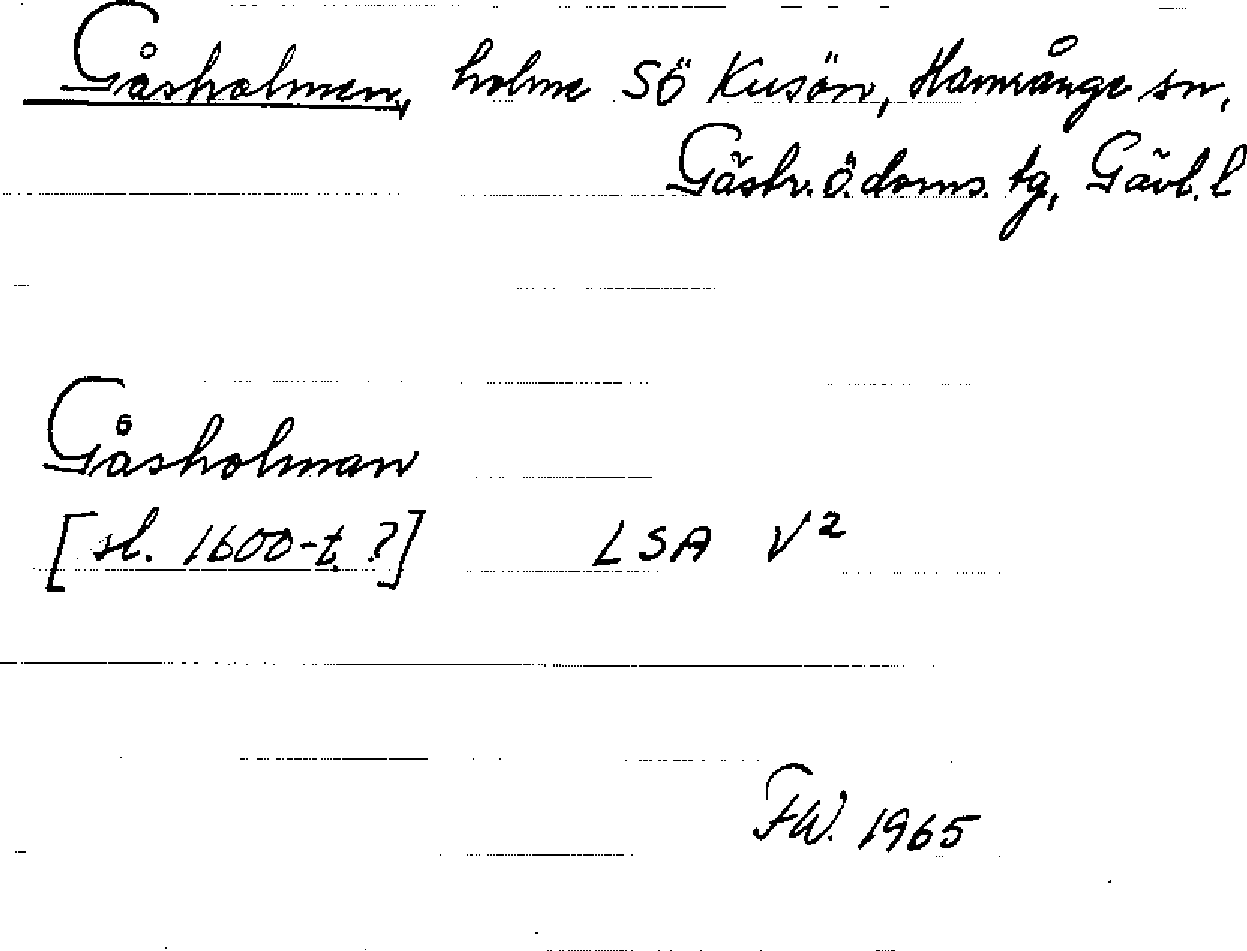 Gåsholmen, holme SÖ Kusön, Hamrånge sn,
Gästr. ö. doms. tg, Gävl. l
Gåsholman
[sl. 1600-t ?] LSA V²
F.W. 1965